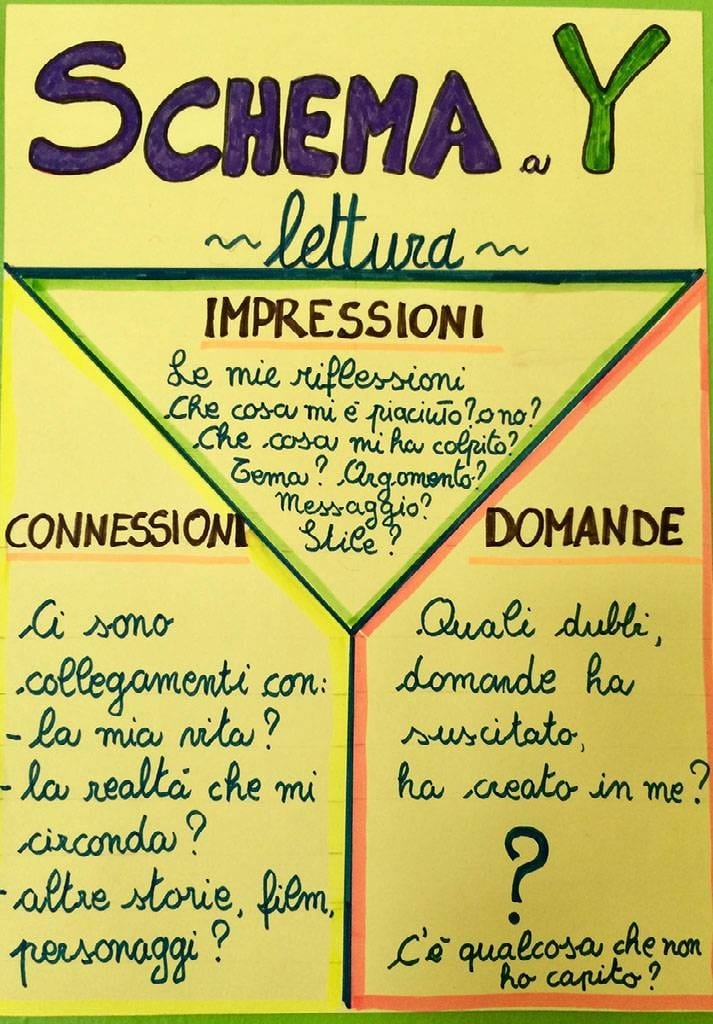 SCHEMA a Y
~ lettura ~
IMPRESSIONI
Le mie riflessioni
Che cosa mi è piaciuto? o no?
Che cosa mi ha colpito?
Tema? Argomento?
Messaggio?
Stile?
CONNESSIONI
Ci sono
collegamenti con:
- la mia vita?
- la realtà che mi
circonda?
- altre storie, film,
personaggi?
DOMANDE
Quali dubbi,
domande ha
suscitato,
ha creato in me?
?
C'è qualcosa che non
ho capito?